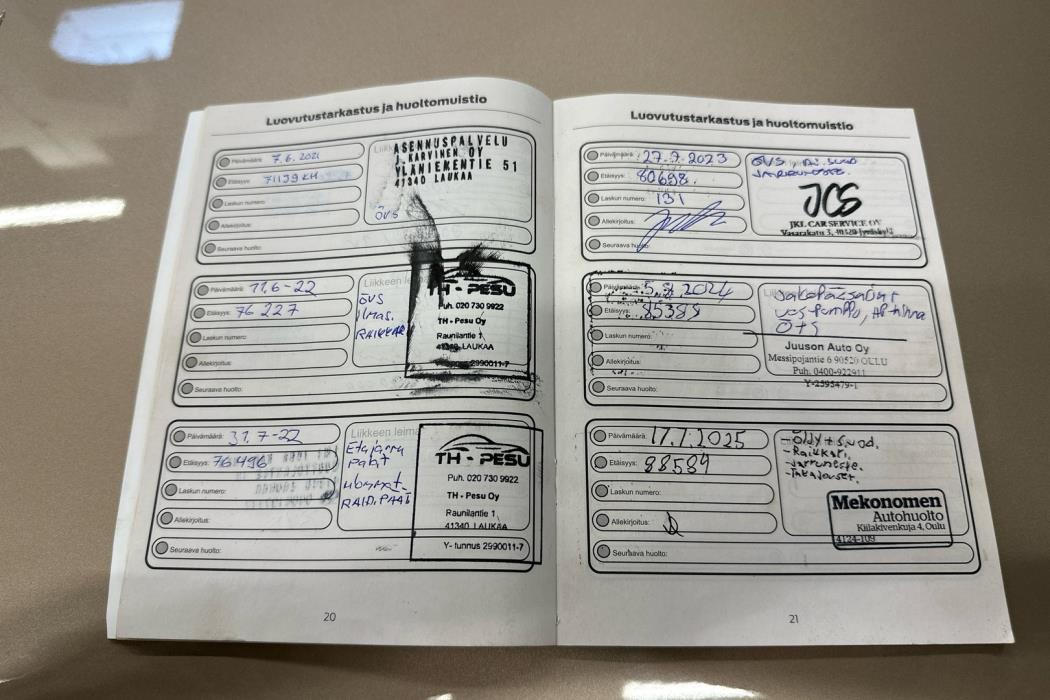 Luovutustarkastus ja huoltomuistio
Päivämäärä: 7.6.2021
Etäisyys: 71139 KM
Laskun numero:
Allekirjoitus:
Seuraava huolto:
ASENNUSPALVELU
J. KARVINEN OY
YLÄNIEMENTIE 51
41340 LAUKAA
ÖVS
Päivämäärä: 11.6-22
Etäisyys: 76227
Laskun numero:
Allekirjoitus:
Seuraava huolto:
Liikkeen leima
ÖVS
ILMAS.
RAIKKARI
TH-PESU
Puh. 020 730 9922
TH - Pesu Oy
Raunilantie 1
41340 LAUKAA
2990011-7
Päivämäärä: 31.7-22
Etäisyys: 76496
Laskun numero:
Allekirjoitus:
Seuraava huolto:
Liikkeen leima
Etujarru
palat
RAID.PÄÄT
TH-PESU
Puh. 020 730 9922
TH - Pesu Oy
Raunilantie 1
41340 LAUKAA
Y- tunnus 2990011-7
20
Luovutustarkastus ja huoltomuistio
Päivämäärä: 27.9.2023
Etäisyys: 80698.
Laskun numero: 131
Allekirjoitus:
Seuraava huolto:
ÖVS,
JARRUNESTE.
JCS
JKL CAR SERVICE OY
Vasarakatu 3, 40320 Jyväskylä
Päivämäärä: 5.2024
Etäisyys: 85389
Laskun numero:
Allekirjoitus:
Seuraava huolto:
Jakopääsarja+
vesipumppu, AP-hihna
Ö+S
Juuson Auto Oy
Messipojantie 6 90520 OULU
Puh. 0400-922911
Y-2595479-1
Päivämäärä: 17.7.2025
Etäisyys: 88589
Laskun numero:
Allekirjoitus:
Seuraava huolto:
- Öljy + suod.
- Raikkari.
- Jarruneste.
- Takajouset.
Mekonomen
Autohuolto
Kiilakivenkuja 4, Oulu
4124-109
21